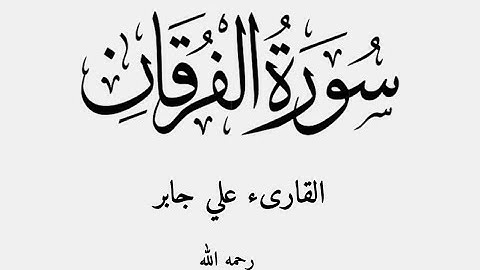 سُورَةُ الْفُرْقَانِ
القارىء علي جابر
رحمه الله